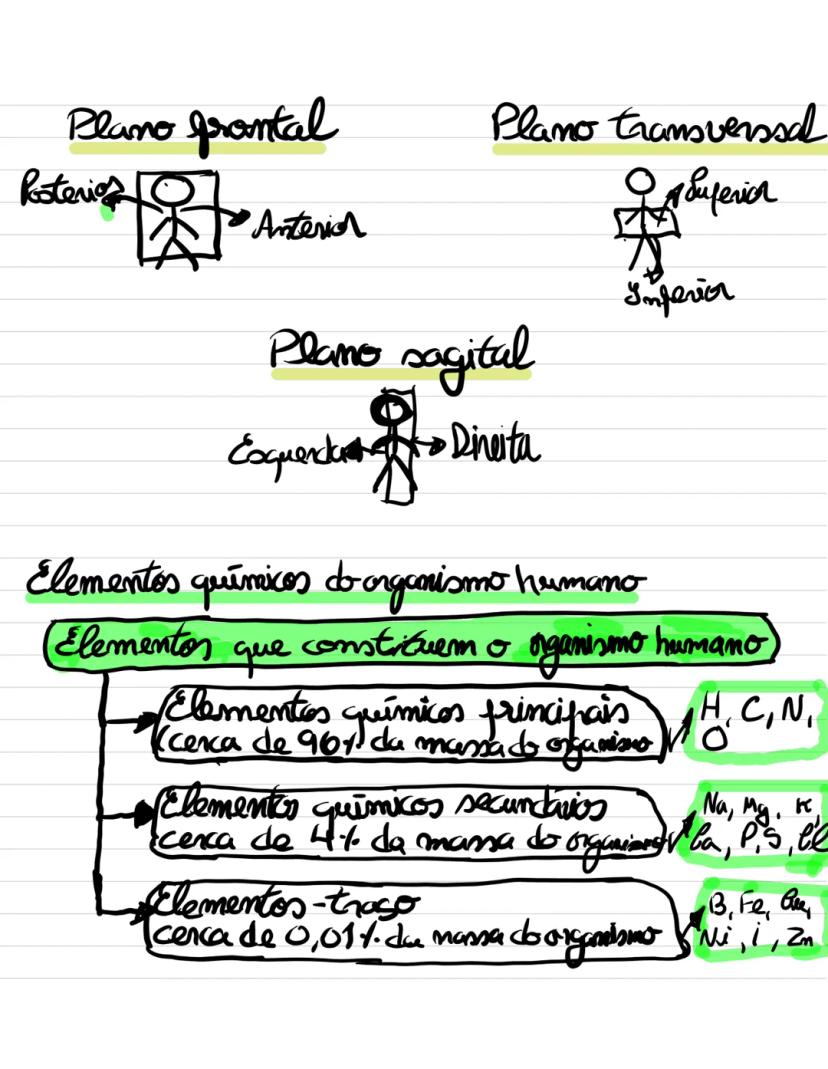 Plano frontal
Plano transverssal
Posterior
Anterior
Superior
Inferior
Plano sagital
Esquerda
Direita
Elementos químicos do organismo humano
Elementos que constituem o organismo humano
Elementos químicos principais
(cerca de 96% da massa do organismo
H, C, N,
O
Elementos químicos secundários
cerca de 4% da massa do organismo
Na, Mg, K,
Ca, P, S, Cl
Elementos-traço
cerca de 0,01% da massa do organismo
B, Fe, Cu,
Ni, I, Zn